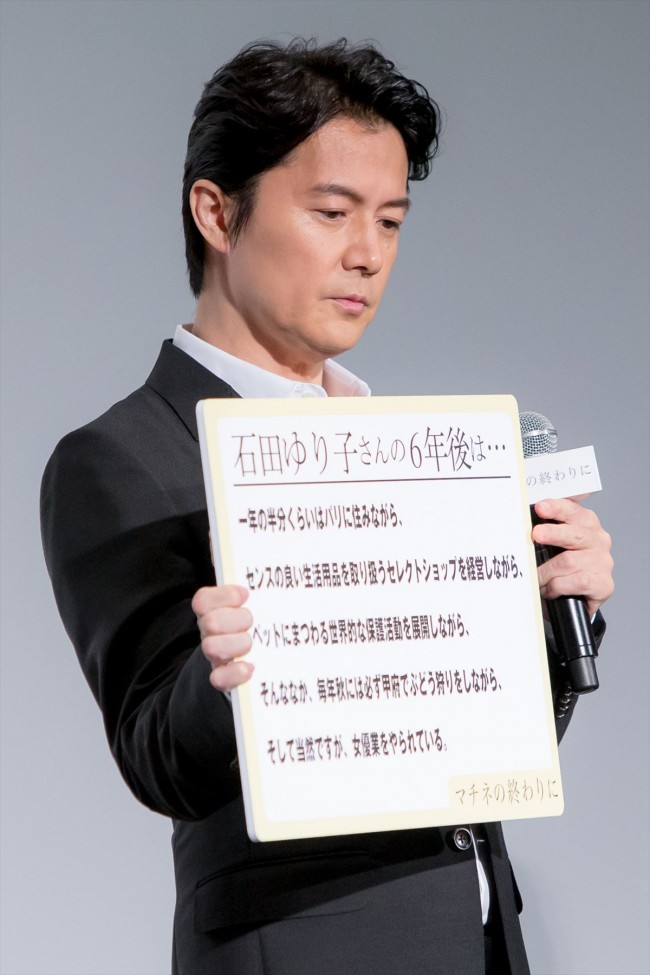 石田ゆり子さんの6年後は…
一年の半分くらいはパリに住みながら、
センスの良い生活用品を取り扱うセレクトショップを経営しながら、
ペットにまつわる世界的な保護活動を展開しながら、
そんななか、毎年秋には必ず甲府でぶどう狩りをしながら、
そして当然ですが、女優業をやられている。
マチネの終わりに
の終わりに